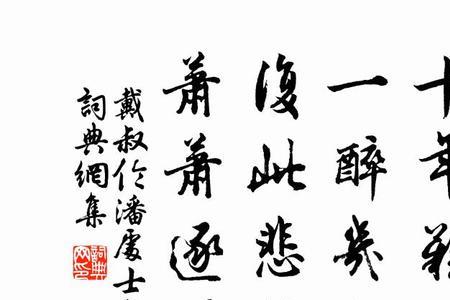 十年
一醉幾
復此悲
蕭蕭逐
戴叔倫潘處士
詞典網集